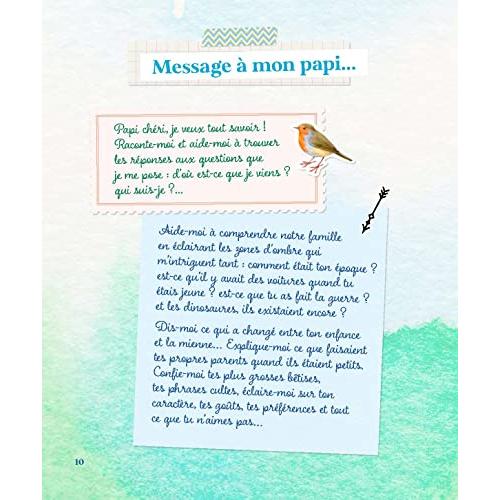 Message à mon papi...
Papi chéri, je veux tout savoir !
Raconte-moi et aide-moi à trouver
les réponses aux questions que
je me pose : d'où est-ce que je viens ?
qui suis-je ?...
Aide-moi à comprendre notre famille
en éclairant les zones d'ombre qui
m'intriguent tant : comment était ton époque ?
est-ce qu'il y avait des voitures quand tu
étais jeune ? est-ce que tu as fait la guerre ?
et les dinosaures, ils existaient encore ?
Dis-moi ce qui a changé entre ton enfance
et la mienne... Explique-moi ce que faisaient
tes propres parents quand ils étaient petits.
Confie-moi tes plus grosses bêtises,
tes phrases cultes, éclaire-moi sur ton
caractère, tes goûts, tes préférences et tout
ce que tu n'aimes pas...
10